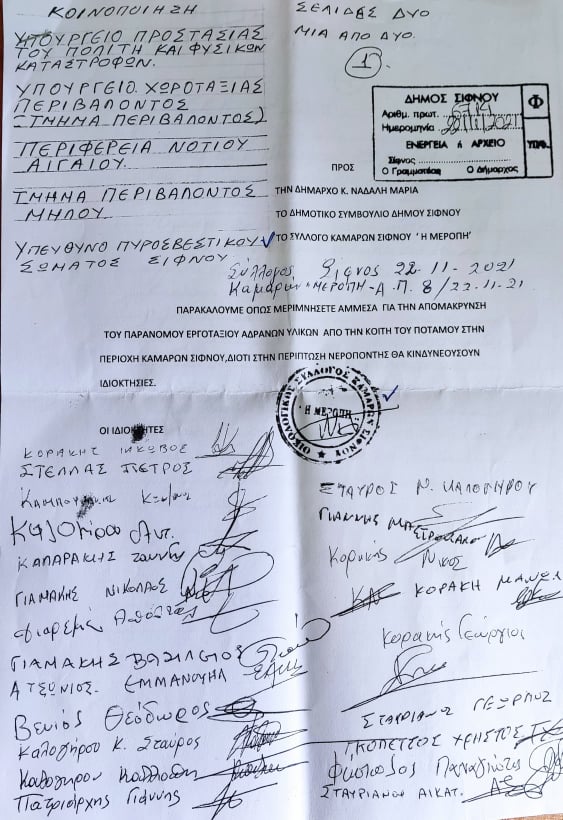 ΚΟΙΝΟΠΟΙΗΣΗ
ΥΠΟΥΡΓΕΙΟ ΠΡΟΣΤΑΣΙΑΣ
ΤΟΥ ΠΟΛΙΤΗ ΚΑΙ ΦΥΣΙΚΩΝ
ΚΑΤΑΣΤΡΟΦΩΝ.
ΥΠΟΥΡΓΕΙΟ ΧΩΡΟΤΑΞΙΑΣ
ΠΕΡΙΒΑΛΟΝΤΟΣ
(ΤΜΗΜΑ ΠΕΡΙΒΑΛΟΝΤΟΣ)
ΠΕΡΙΦΕΡΕΙΑ ΝΟΤΙΟΥ
ΑΙΓΑΙΟΥ.
ΤΜΗΜΑ ΠΕΡΙΒΑΛΟΝΤΟΣ
ΜΗΛΟΥ.
ΥΠΕΥΘΥΝΟ ΠΥΡΟΣΒΕΣΤΙΚΟΥ
ΣΩΜΑΤΟΣ ΣΙΦΝΟΥ
ΣΕΛΙΔΕΣ ΔΥΟ
ΜΙΑ ΑΠΟ ΔΥΟ.
1
ΔΗΜΟΣ ΣΙΦΝΟΥ
Αριθμ. πρωτ.
Ημερομηνία 22/11/2021
ΕΝΕΡΓΕΙΑ ή ΑΡΧΕΙΟ
Σίφνος
Ο Γραμματέας Ο Δήμαρχος
Φ
ΠΡΟΣ
ΤΗΝ ΔΗΜΑΡΧΟ Κ. ΝΑΔΑΛΗ ΜΑΡΙΑ
ΤΟ ΔΗΜΟΤΙΚΟ ΣΥΜΒΟΥΛΙΟ ΔΗΜΟΥ ΣΙΦΝΟΥ
ΤΟ ΣΥΛΛΟΓΟ ΚΑΜΑΡΩΝ ΣΙΦΝΟΥ 'Η ΜΕΡΟΠΗ'
Σύλλογος Σίφνος 22-11-2021
Καμαρών "ΜΕΡΟΠΗ" - Α.Π. 8/22-11-21
ΠΑΡΑΚΑΛΟΥΜΕ ΟΠΩΣ ΜΕΡΙΜΝΗΣΕΤΕ ΑΜΜΕΣΑ ΓΙΑ ΤΗΝ ΑΠΟΜΑΚΡΥΝΣΗ
ΤΟΥ ΠΑΡΑΝΟΜΟΥ ΕΡΓΟΤΑΞΙΟΥ ΑΔΡΑΝΩΝ ΥΛΙΚΩΝ ΑΠΟ ΤΗΝ ΚΟΙΤΗ ΤΟΥ ΠΟΤΑΜΟΥ ΣΤΗΝ
ΠΕΡΙΟΧΗ ΚΑΜΑΡΩΝ ΣΙΦΝΟΥ,ΔΙΟΤΙ ΣΤΗΝ ΠΕΡΙΠΤΩΣΗ ΝΕΡΟΠΟΝΤΗΣ ΘΑ ΚΙΝΔΥΝΕΥΣΟΥΝ
ΙΔΙΟΚΤΗΣΙΕΣ.
ΟΙΚΟΛΟΓΙΚΟΣ ΣΥΛΛΟΓΟΣ ΚΑΜΑΡΩΝ ΣΙΦΝΟΥ
"Η ΜΕΡΟΠΗ"
ΟΙ ΙΔΙΟΚΤΗΤΕΣ
ΚΟΡΑΚΗΣ ΙΑΚΩΒΟΣ
ΣΤΕΛΛΑΣ ΠΕΤΡΟΣ
ΚΑΛΟΓΗΡΟΥ Αντ.
ΚΑΠΑΡΑΚΗΣ
ΓΙΑΜΑΚΗΣ ΝΙΚΟΛΑΟΣ
ΓΙΑΜΑΚΗΣ ΒΑΣΙΛΕΙΟΣ
ΑΤΣΩΝΙΟΣ. ΕΜΜΑΝΟΥΗΛ
Βενιός Θεόδωρος
Καλογήρου Κ. Σταύρος
Καλογήρου Καλλιόπη
Πατριάρχης Γιάννης
ΣΤΑΥΡΟΣ Ν. ΚΑΛΟΓΗΡΟΥ
ΓΙΑΝΝΗΣ
Κοράκης Νίκος
ΚΟΡΑΚΗ
Κοράκης Γεώργιος
ΣΤΑΥΡΙΑΝΟΣ ΓΕΩΡΓΙΟΣ
ΧΡΗΣΤΟΣ
Παναγιώτης
ΣΤΑΥΡΙΑΝΟΥ ΑΙΚΑΤ.